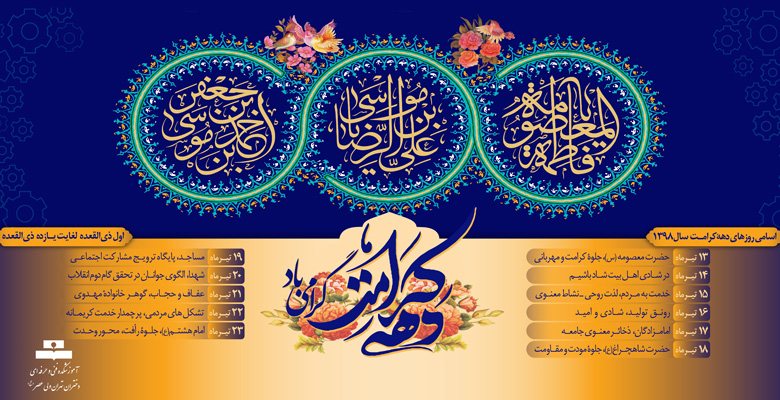 یا فاطمة المعصومة
علی بن موسی الرضا
احمد بن موسی بن جعفر
اسامی روزهای دهه کرامت سال ۱۳۹۸
اول ذی القعده لغایت یازده ذی القعده
دهه کرامت گرامی باد
۱۳ تیرماه حضرت معصومه (س)، جلوهٔ کرامت و مهربانی
۱۴ تیرماه در شادی اهل بیت شاد باشیم
۱۵ تیرماه خدمت به مردم، لذت روحی - نشاط معنوی
۱۶ تیرماه رونق تولید، شادی و امید
۱۷ تیرماه امامزادگان، ذخائر معنوی جامعه
۱۸ تیرماه حضرت شاهچراغ(ع)، جلوهٔ مودت و مقاومت
۱۹ تیرماه مساجد، پایگاه ترویج مشارکت اجتماعی
۲۰ تیرماه شهدا، الگوی جوانان در تحقق گام دوم انقلاب
۲۱ تیرماه عفاف و حجاب، گوهر خانوادهٔ مهدوی
۲۲ تیرماه تشکل های مردمی، پرچمدار خدمت کریمانه
۲۳ تیرماه امام هشتم(ع)، جلوهٔ رأفت، محور وحدت
آموزشکده فنی و حرفه ای
دختران تهران ولی عصر